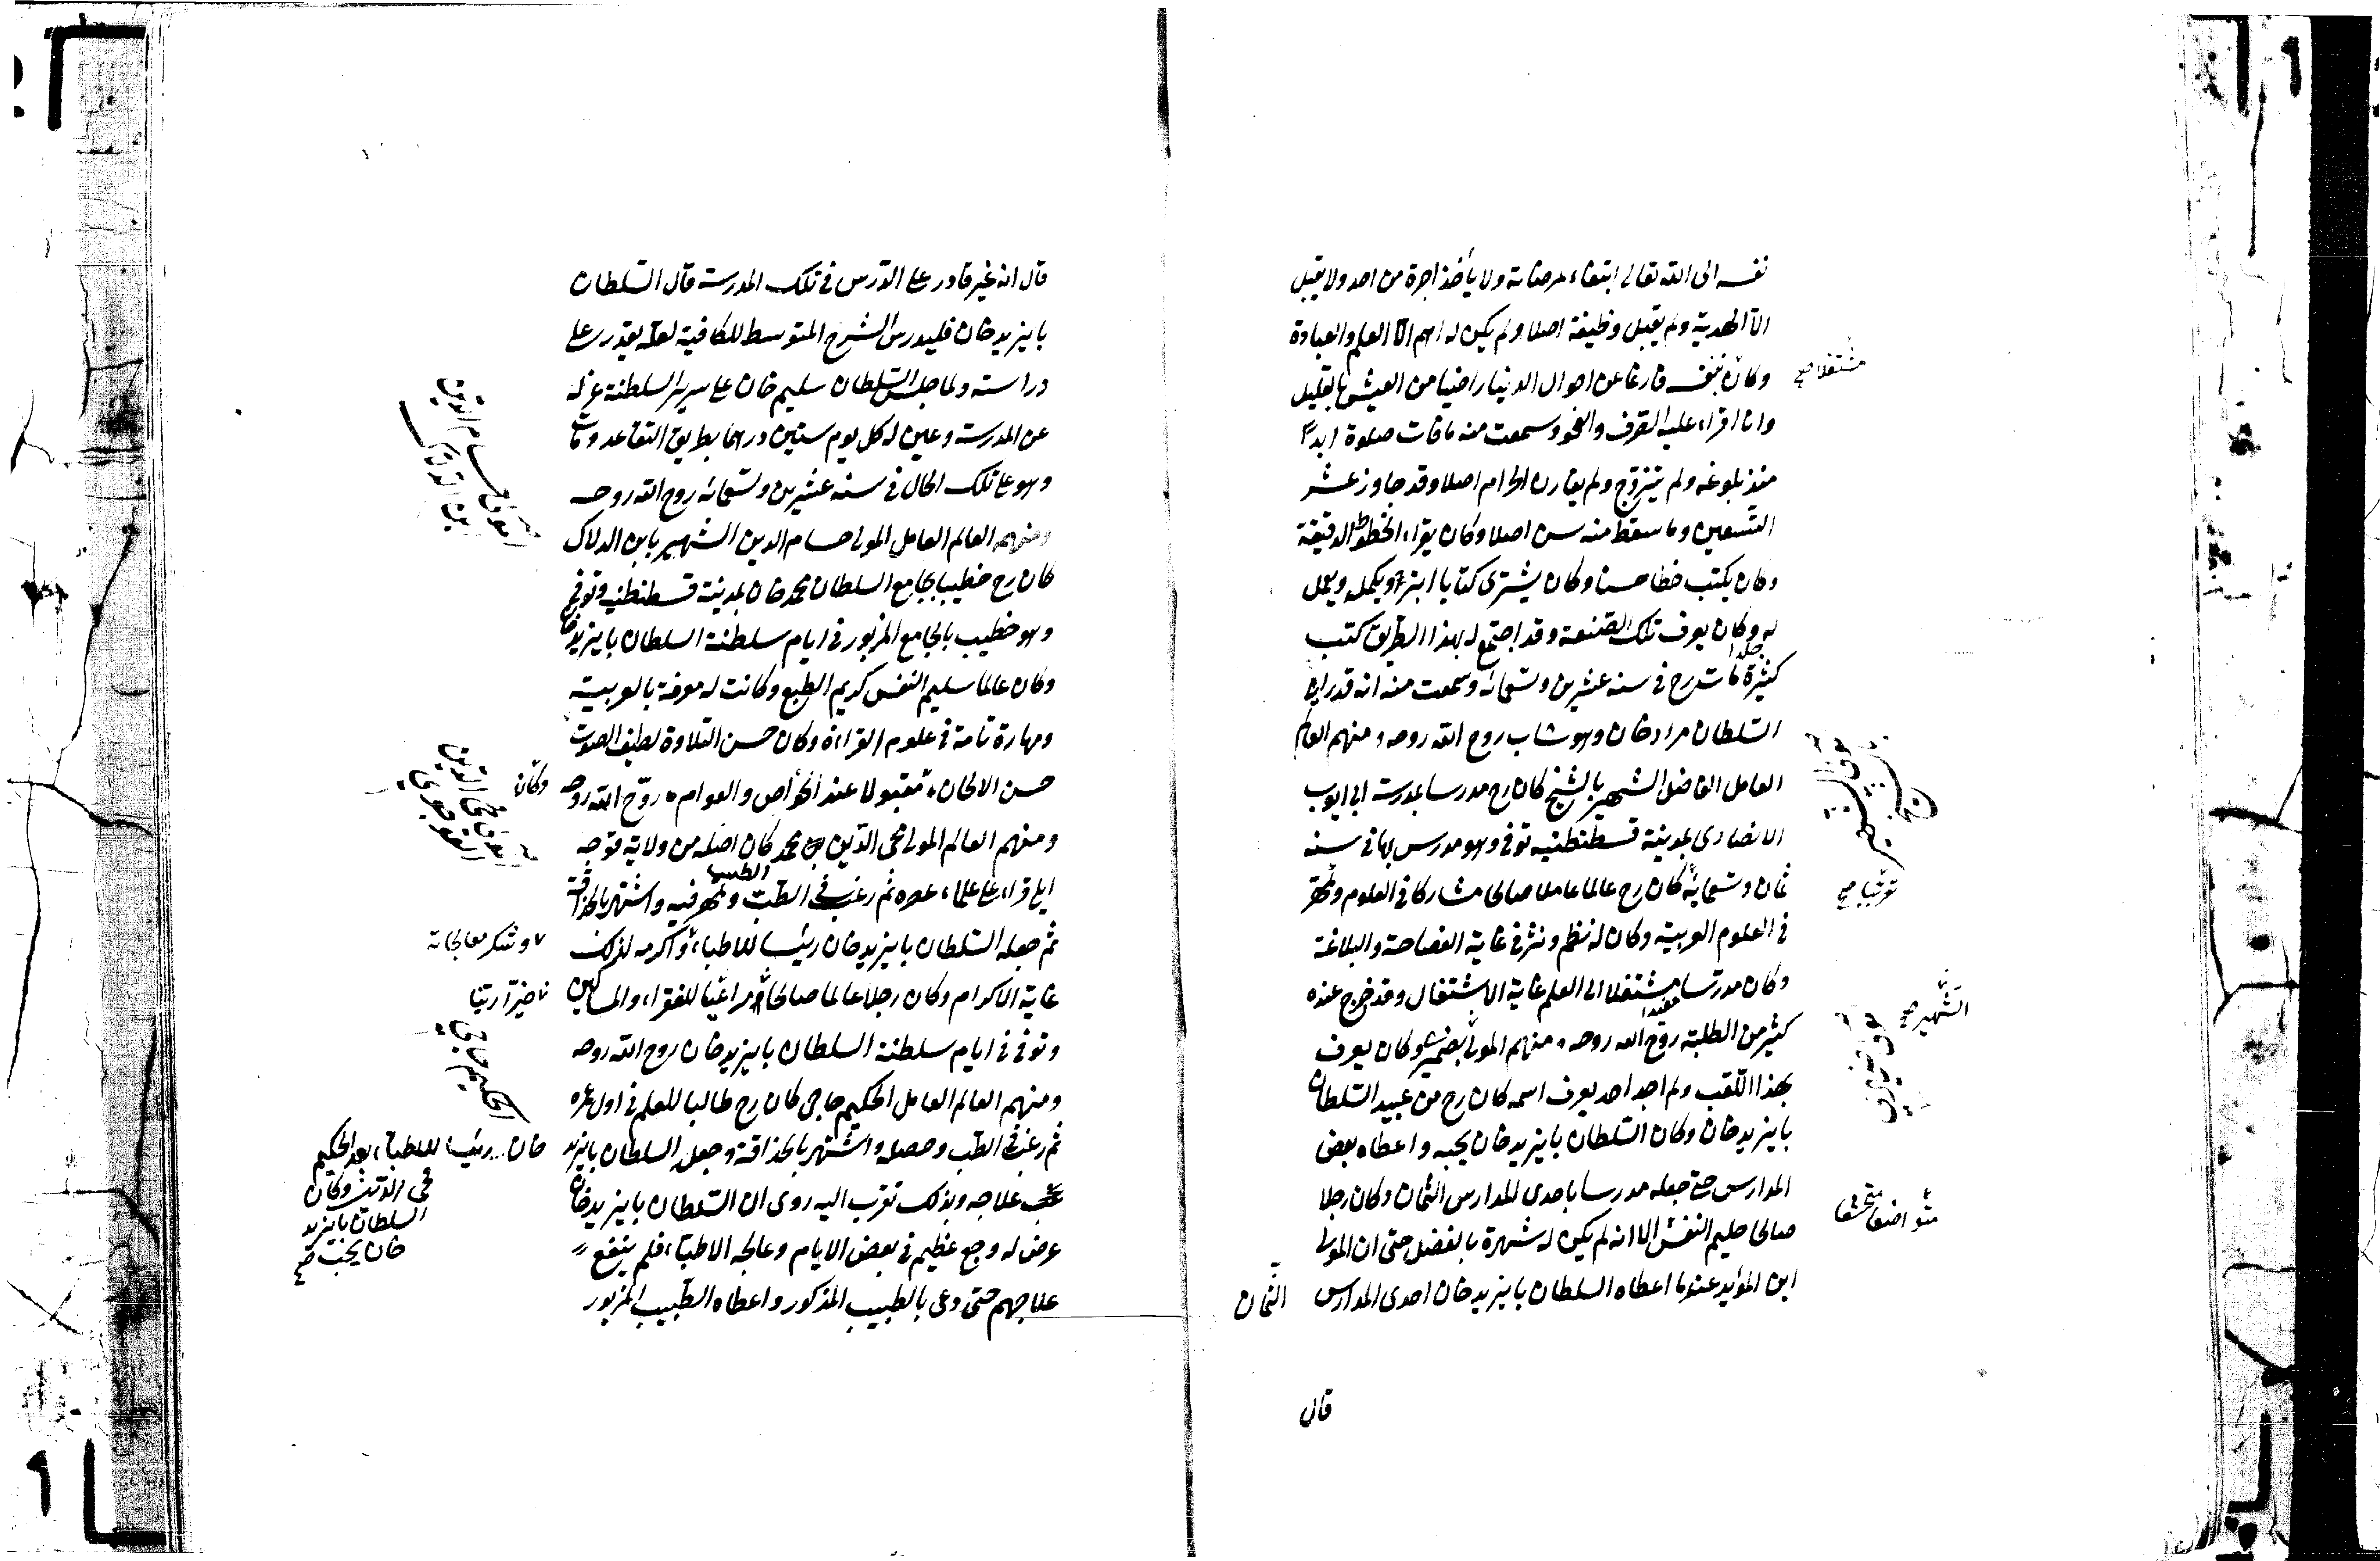 نفسه الى الله تعالى ابتغاء لمرضاته ولا يأخذ اجرة من احد ولا يقبل
الا الهدية ولم يقبل وظيفة اصلا ولم يكن له اهم الا العلم والعبادة
وكان بنفسه فارغا عن احوال الدنيا راضيا من العيش بالقليل
مشتغلا صح
وانا اقراء عليه الصرف والنحو وسمعت منه ما فات صلوة ابدا
منذ بلوغه ولم يتزوج ولم يقارن الحرام اصلا وقد جاوز عشر
التسعين وما سقط منه سن اصلا وكان يقراء الخطوط الدقيقة
وكان يكتب خطا حسنا وكان يشترى كتابا ابتر ويكمله ويعمل
له وكان يعرف تلك الصنعة وقد اجتمع له بهذا الطريق كتب
كثيرة جدا مات رح فى سنه عشرين وتسعمائه وسمعت منه انه قد رأى
السلطان مراد خان وهو شاب روح الله روحه ومنهم العالم
العامل الفاضل الشهير بالشيخ كان رح مدرسا بمدرسة ابى ايوب
الانصارى بمدينة قسطنطنيه توفى وهو مدرس بها فى سنه
ثمان وتسعمائه كان رح عالما عاملا صالحا مشاركا فى العلوم وتمهر
فى العلوم العربية وكان له نظم ونثر فى غاية الفصاحة والبلاغة
وكان مدرسا مفيدا مشتغلا الى العلم غاية الاشتغال وقد خرج عنده
كثير من الطلبة روح الله روحه ومنهم المولى وكان يعرف
الشهير صح
بهذا اللقب ولم اجد احد يعرف اسمه كان رح من عبيد السلطان
بايزيد خان وكان السلطان بايزيد خان يحبه واعطاه بعض
المدارس حتى جعله مدرسا باحدى المدارس الثمان وكان رجلا
متواضعا متخشعا
صالحا حليم النفس الا انه لم يكن له شهرة بالفضل حتى ان المولى
ابن المؤيد عندما اعطاه السلطان بايزيد خان احدى المدارس الثمان
قال
قال انه غير قادر على الدرس فى تلك المدرسة قال السلطان
بايزيد خان فليدرس الشرح المتوسط للكافية لعله يقدر على
دراسته ولما جلس السلطان سليم خان على سرير السلطنة عزله
عن المدرسة وعين له كل يوم ستين درهما بطريق التقاعد ومات
وهو على تلك الحال فى سنه عشرين وتسعمائه روح الله روحه
المولى حسام الدين
بن الدلاك
ومنهم العالم العامل المولى حسام الدين الشهير بابن الدلاك
كان رح خطيبا بجامع السلطان محمد خان بمدينة قسطنطنيه وتوفى
وهو خطيب بالجامع المزبور فى ايام سلطنة السلطان بايزيد خان
وكان عالما سليم النفس كريم الطبع وكانت له معرفة بالعربية
ومهارة تامة فى علوم القراءة وكان حسن التلاوة لطيف الصوت
حسن الالحان مقبولا عند الخواص والعوام روح الله روحه
وكان
ومنهم العالم المولى محى الدين محمد كان اصله من ولاية قوجه
ايلى قراء على علماء عصره ثم رغب فى الطب وتمهر فيه واشتهر بالحذاقة
ثم جعله السلطان بايزيد خان رئيسا للاطباء واكرمه لذلك
وشكر معالجاته
غاية الاكرام وكان رجلا عالما صالحا مراعيا للفقراء والمساكين
خيرا دينا
وتوفى فى ايام سلطنة السلطان بايزيد خان روح الله روحه
الحكيم حاجى
ومنهم العالم العامل الحكيم حاجى كان رح طالبا للعلم فى اول عمره
ثم رغب فى الطب وحصله واشتهر بالحذاقة وجعله السلطان بايزيد
خان رئيسا للاطباء بعد الحكيم
محى الدين وكان
السلطان بايزيد
خان يحب صح
علاجه وبذلك تقرب اليه روى ان السلطان بايزيد خان
عرض له وجع عظيم فى بعض الايام وعالجه الاطباء فلم ينفع
علاجهم حتى دعى بالطبيب المذكور واعطاه الطبيب المزبور